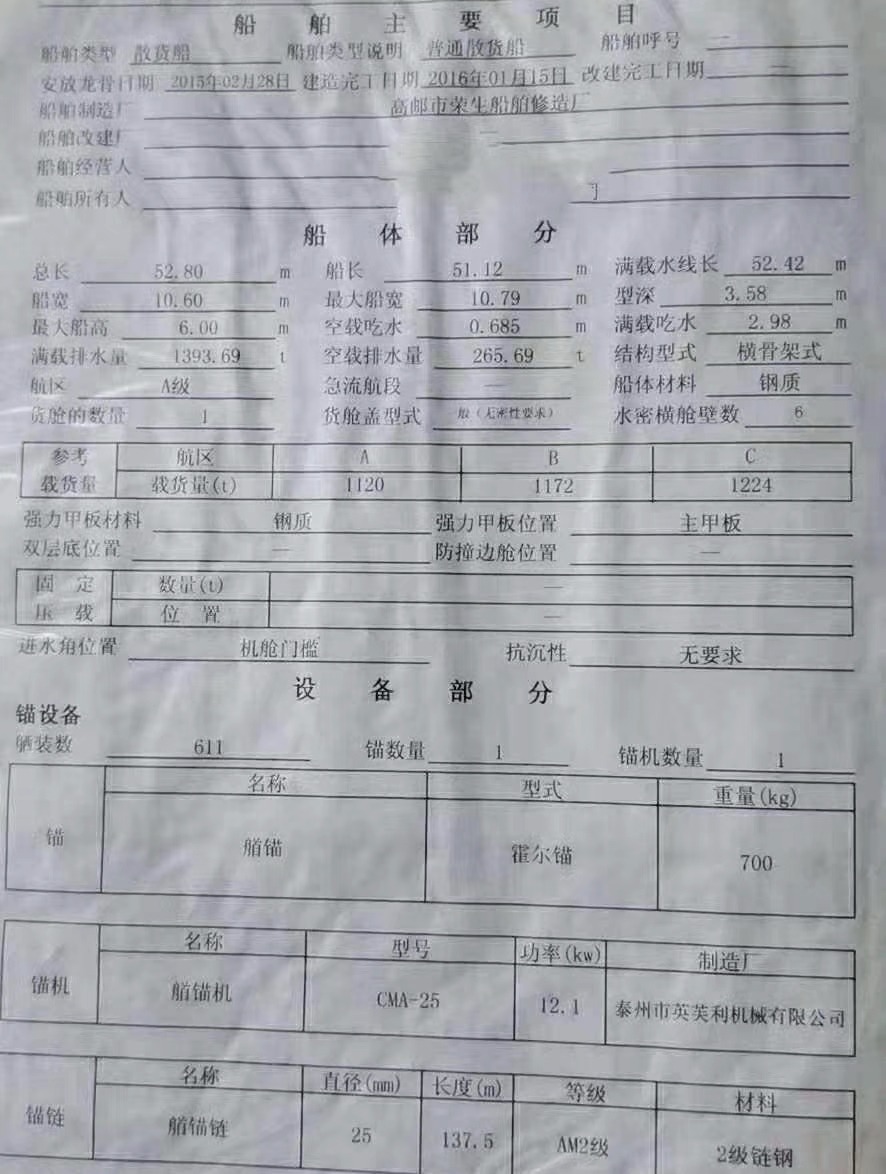 船舶主要项目
船舶类型 散货船 船舶类型说明 普通散货船 船舶呼号 —
安放龙骨日期 2015年02月28日 建造完工日期 2016年01月15日 改建完工日期 —
船舶制造厂 高邮市荣生船舶修造厂
船舶改建厂 —
船舶经营人
船舶所有人
船体部分
总长 52.80 m 船长 51.12 m 满载水线长 52.42 m
船宽 10.60 m 最大船宽 10.79 m 型深 3.58 m
最大船高 6.00 m 空载吃水 0.685 m 满载吃水 2.98 m
满载排水量 1393.69 t 空载排水量 265.69 t 结构型式 横骨架式
航区 A级 急流航段 — 船体材料 钢质
货舱的数量 1 货舱盖型式 般(无密性要求) 水密横舱壁数 6
参考 航区 A B C
载货量 载货量(t) 1120 1172 1224
强力甲板材料 钢质 强力甲板位置 主甲板
双层底位置 — 防撞边舱位置 —
固定 数量(t) —
压载 位置 —
进水角位置 机舱门槛 抗沉性 无要求
设备部分
锚设备
舾装数 611 锚数量 1 锚机数量 1
名称 型式 重量(kg)
锚 艏锚 霍尔锚 700
名称 型号 功率(kw) 制造厂
锚机 艏锚机 CMA-25 12.1 泰州市英芙利机械有限公司
名称 直径(mm) 长度(m) 等级 材料
锚链 艏锚链 25 137.5 AM2级 2级链钢